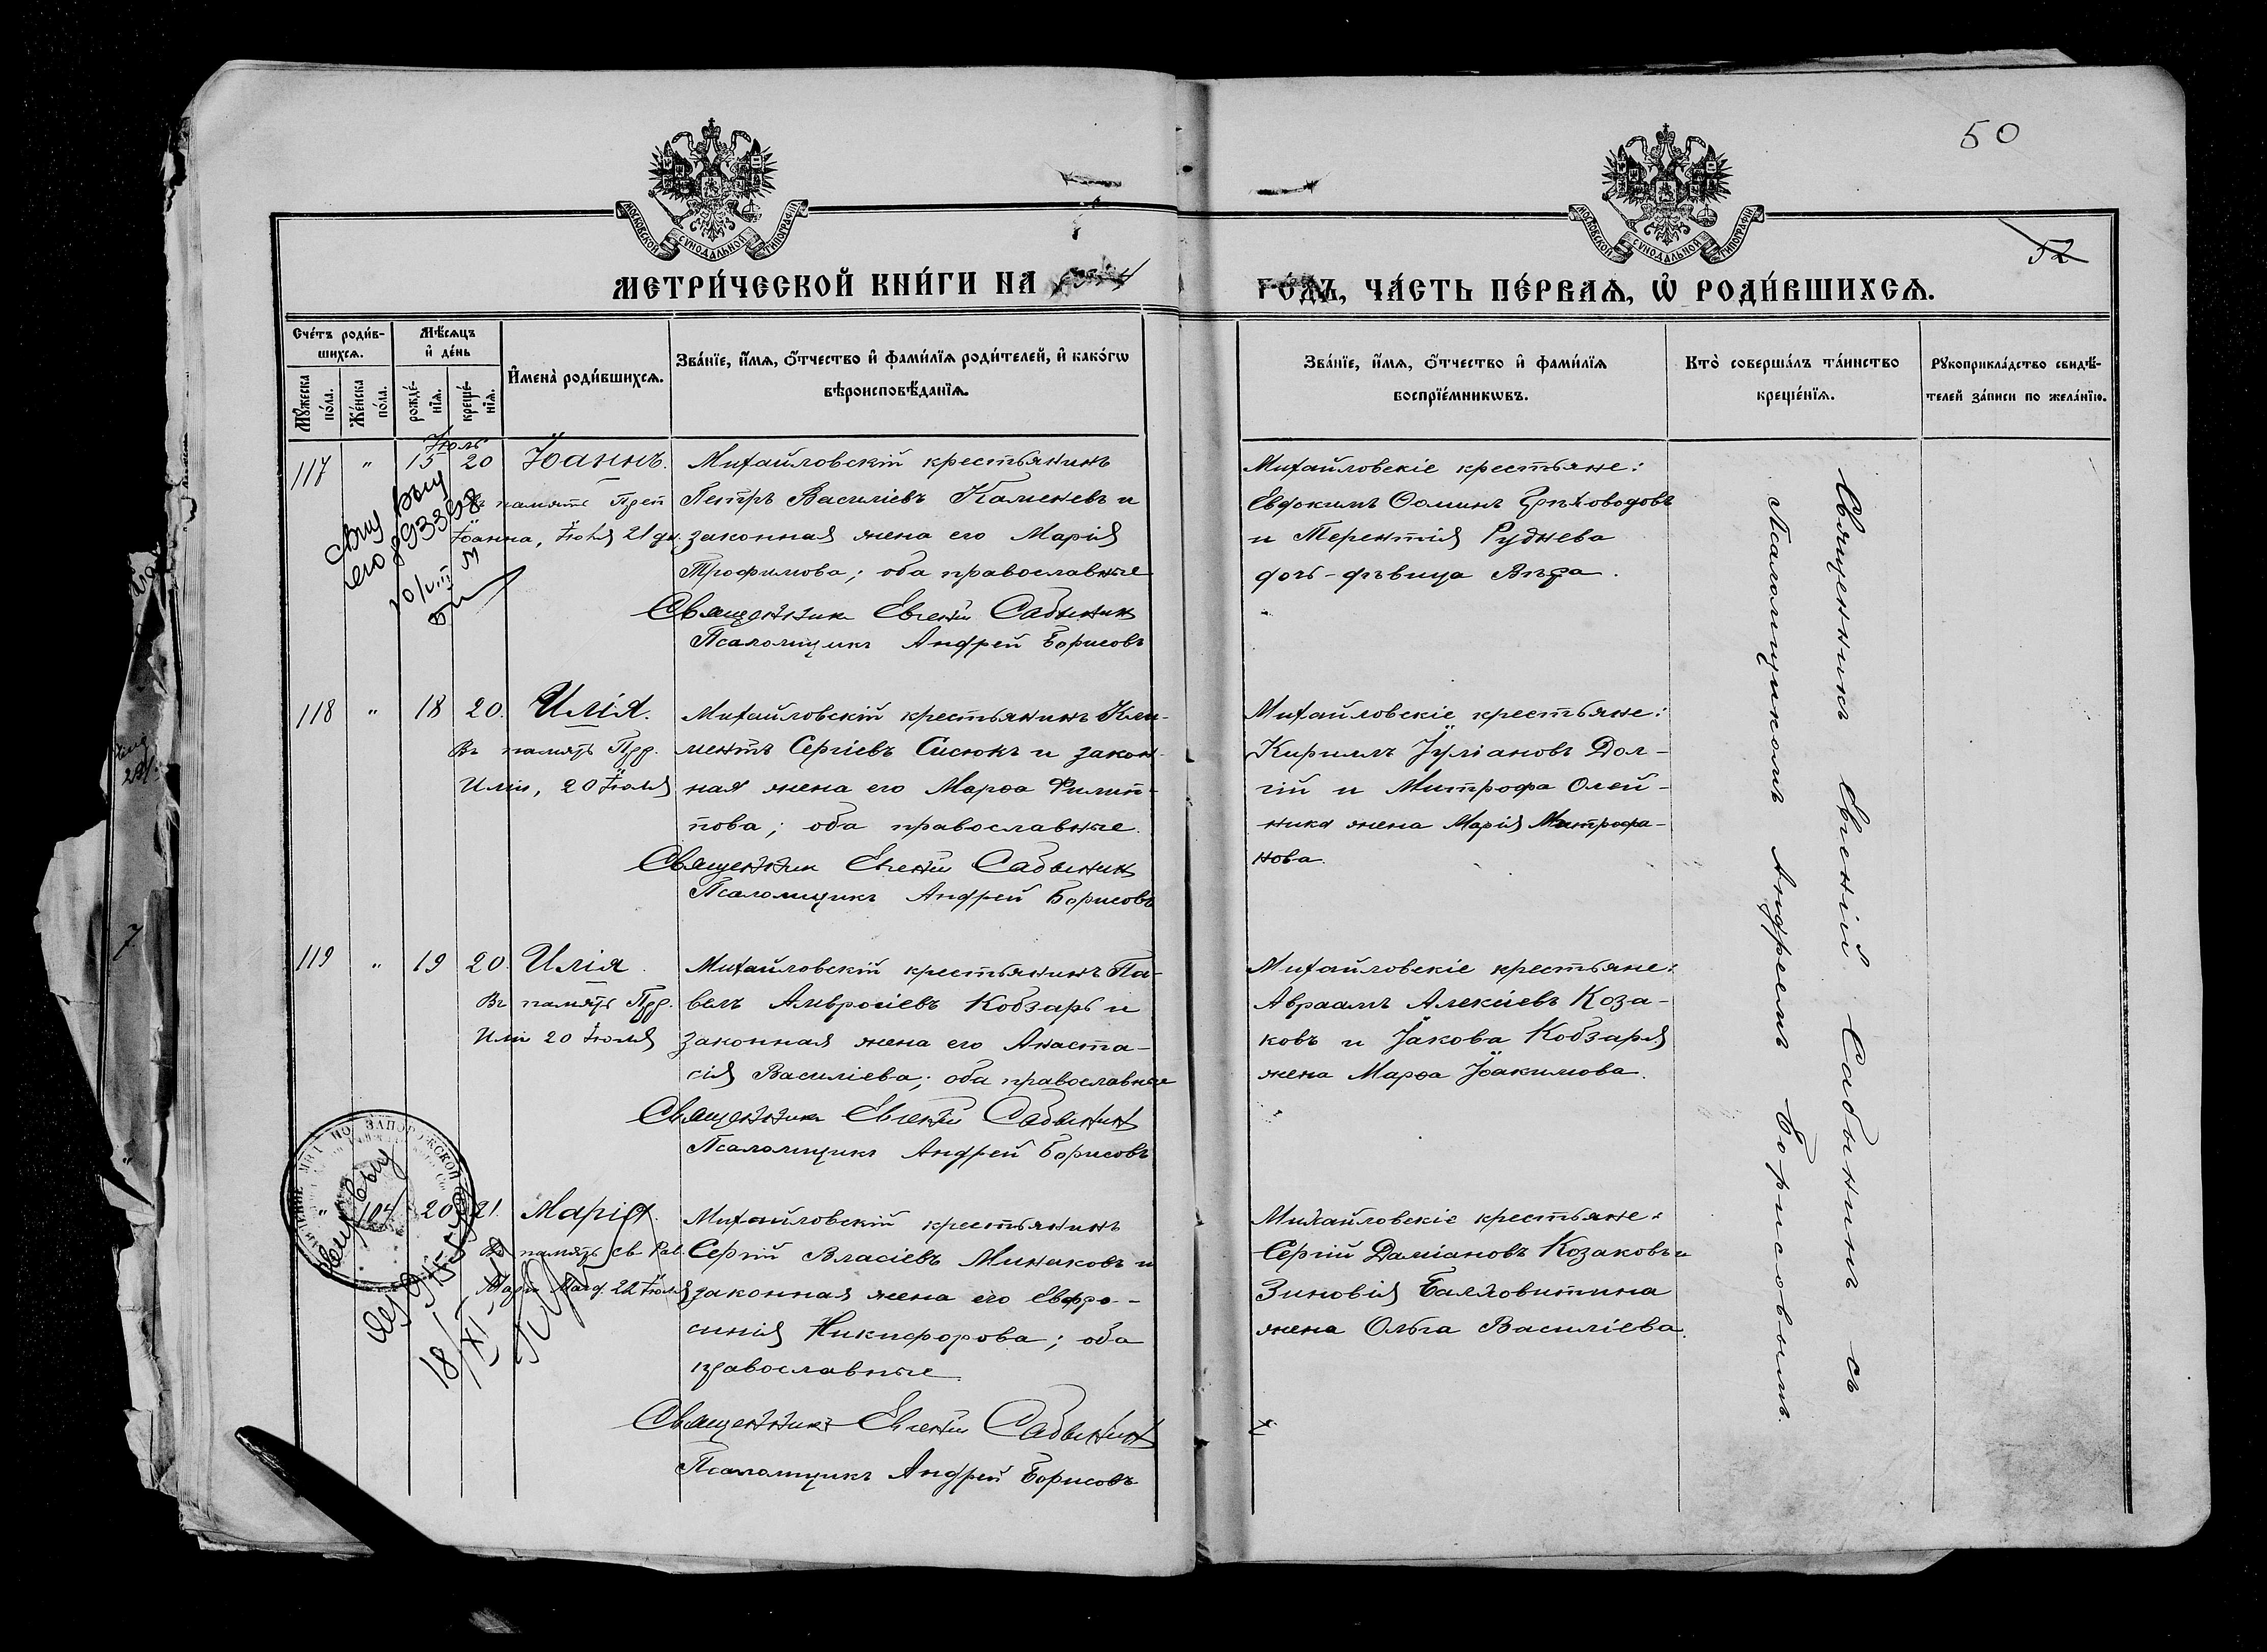 50
52
МОСКОВСКОЙ СѴНОДАЛЬНОЙ ТИПОГРАФІИ
МОСКОВСКОЙ СѴНОДАЛЬНОЙ ТИПОГРАФІИ
МЕТРИ́ЧЕСКОЙ КНИ́ГИ НА
ГО́ДЪ, ЧА́СТЬ ПЕ́РВАѦ, Ѡ҆ РОДИ́ВШИХСѦ.
Сче́тъ роди́в-
шихсѧ.
Мꙋ́жеска по́ла.
Же́нска по́ла.
Мѣ́сѧцъ
и҆ де́нь
рожде́-
нїѧ.
креще́-
нїѧ.
И҆мена̀ роди́вшихсѧ.
Зва́нїе, и҆́мѧ, ѻ҆́тчество и҆ фами́лїѧ роди́телей, и҆ како́гѡ
вѣроисповѣ́данїѧ.
Зва́нїе, и҆́мѧ, ѻ҆́тчество и҆ фами́лїѧ
воспрїе́мникѡвъ.
Кто̀ соверша́лъ та́инство
креще́нїѧ.
Рꙋкоприкла́дство свидѣ́-
телей за́писи по жела́нїю.
Іюль
117 " 15 20 Іоаннъ.
Въ память Преп
Іоанна, Іюля 21 дн.
Михайловскій крестьянинъ
Петръ Василіевъ Каменевъ и
законная жена его Марія
Трофимова; оба православные
Священник Евгений Сабынин
Псаломщикъ Андрей Борисовъ
Михайловскіе крестьяне:
Евдокимъ Ѳоминъ Грѣховодовъ
и Терентія Руднева
дочь-дѣвица Вѣра.
118 " 18 20. Илія.
Въ память Прр.
Иліи, 20 Іюля
Михайловскій крестьянинъ Кли-
ментъ Сергіевъ Сисюкъ и закон-
ная жена его Марѳа Филип-
пова; оба православные.
Священник Евгений Сабынин
Псаломщикъ Андрей Борисовъ
Михайловскіе крестьяне:
Кириллъ Іуліановъ Дол-
гій и Митрофа Олей-
ника жена Марія Митрофа-
нова.
119 " 19 20. Илія.
Въ память Прр.
Иліи 20 Іюля
Михайловскій крестьянинъ Па-
велъ Амвросіевъ Кобзарь и
законная жена его Анаста-
сія Василіева; оба православные
Священник Евгений Сабынин
Псаломщикъ Андрей Борисовъ
Михайловскіе крестьяне:
Авраамъ Алексіевъ Коза-
ковъ и Іакова Кобзаря
жена Марѳа Іоакимова.
" 104 20 21. Марія.
Въ память св. Рав.
Маріи Магд. 22 Іюля
Михайловскій крестьянинъ
Сергій Власіевъ Минаковъ и
законная жена его Евфро-
синія Никифорова; оба
православные
Священникъ Евгений Сабынин
Псаломщикъ Андрей Борисовъ
Михайловскіе крестьяне:
Сергій Даміановъ Козаковъ и
Зиновія Балловитина
жена Ольга Василіева.
Священникъ Евгеній Сабынинъ съ
Псаломщикомъ Андреемъ Борисовымъ.